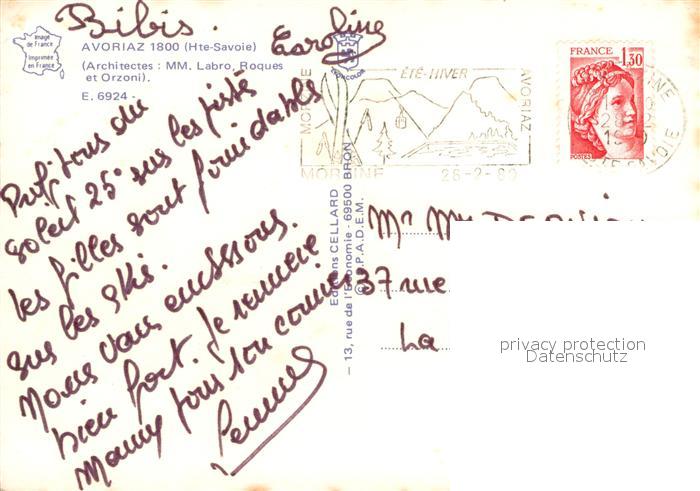 Bibis.
Caroline
Image
de France
Imprimée
en France
AVORIAZ 1800 (Hte-Savoie)
(Architectes : MM. Labro, Roques
et Orzoni).
E. 6924 -
Profitons du
soleil 25° sur les pistes
les filles sont formidables
sur les skis.
Nous vous embrassons
bien fort. Je remercie
Mamy pour son courrier
MORZINE
ÉTÉ-HIVER
AVORIAZ
MORZINE 28-2-80
FRANCE
1,30
POSTES
HTE SAVOIE
Editions CELLARD
- 13, rue de l'Economie - 69500 BRON
S.P.A.D.E.M.
Mr Mme
37 rue
La
privacy protection
Datenschutz